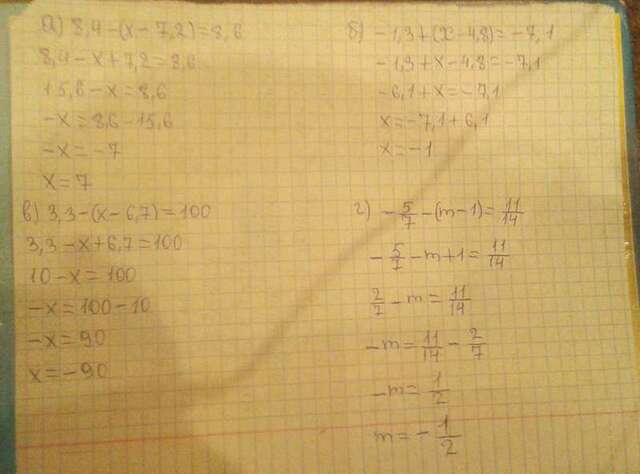 а) 8,4-(x-7,2)=8,6
8,4-x+7,2=8,6
15,6-x=8,6
-x=8,6-15,6
-x=-7
x=7
б) -1,3+(x-4,8)=-7,1
-1,3+x-4,8=-7,1
-6,1+x=-7,1
x=-7,1+6,1
x=-1
в) 3,3-(x-6,7)=100
3,3-x+6,7=100
10-x=100
-x=100-10
-x=90
x=-90
г) -5/7-(m-1)=11/14
-5/7-m+1=11/14
2/7-m=11/14
-m=11/14-2/7
-m=1/2
m=-1/2